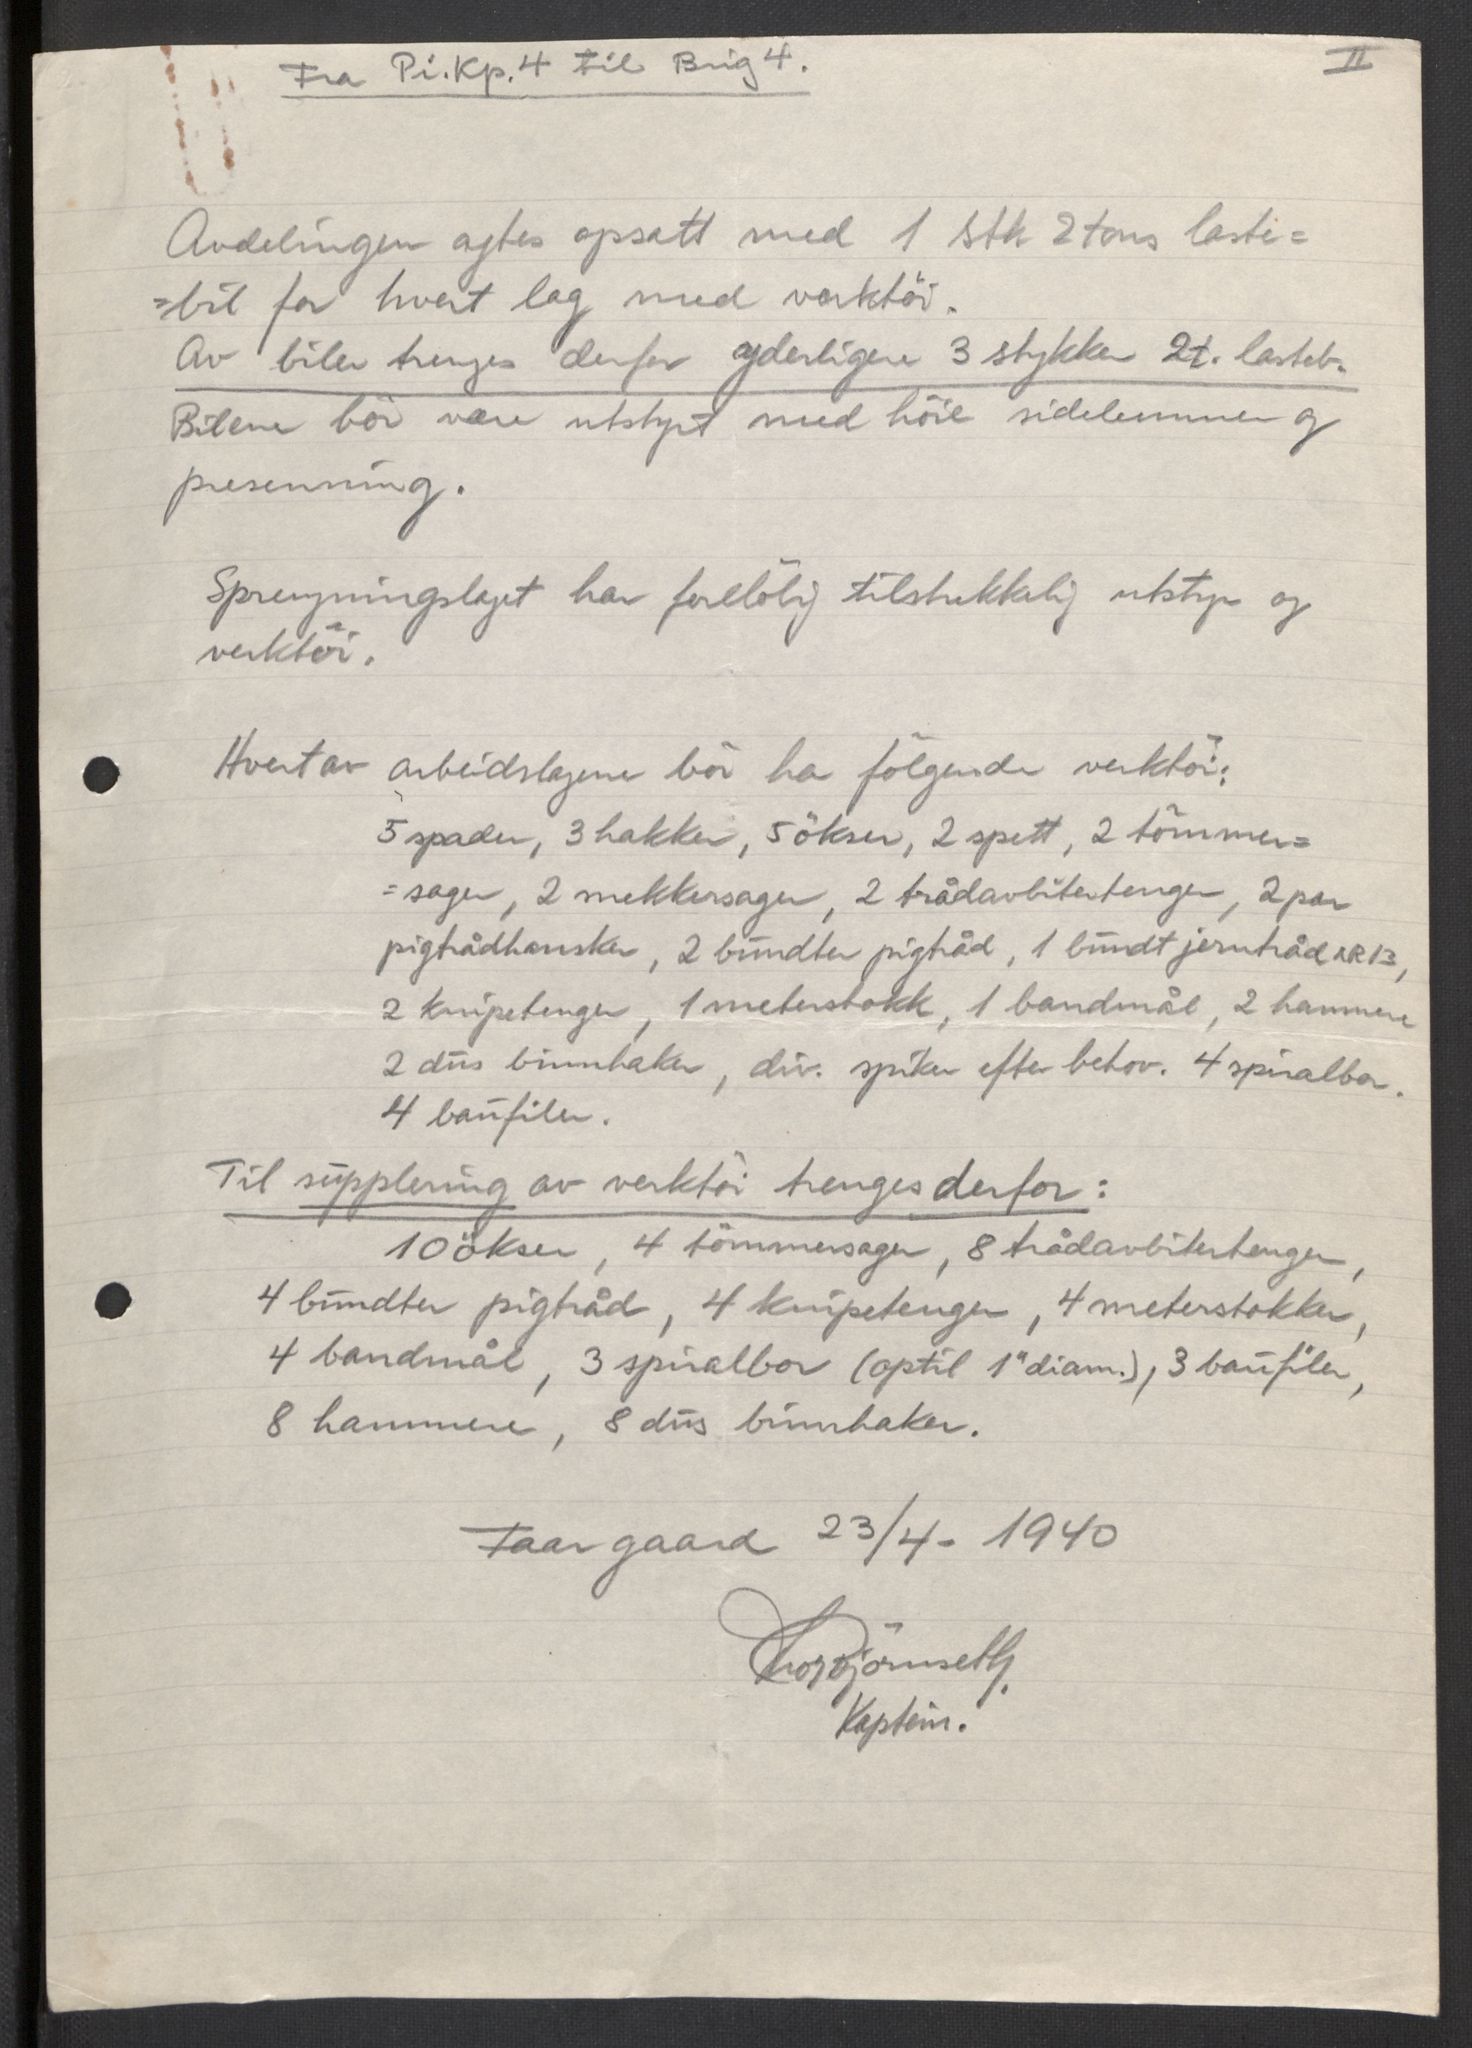 Fra Pi.Kp.4 til Brig 4.
II
Avdelingen agtes opsatt med 1 stk 2 tons laste=
=bil for hvert lag med verktöi.
Av biler trenges derfor yderligere 3 stykker 2t. lasteb.
Bilene bör være utstyrt med höie sidelemmer og
presenning.
Sprengningslaget har forelöbig tilstrekkelig utstyr og
verktöi.
Hvert av arbeidslagene bör ha fölgende verktöi:
5 spader, 3 hakker, 5 ökser, 2 spett, 2 tömmer=
=sager, 2 mekkersager, 2 trådavbitertenger, 2 par
pigtrådhansker, 2 bundter pigtråd, 1 bundt jerntråd NR 13,
2 knipetenger, 1 meterstokk, 1 bandmål, 2 hammere
2 dus binnhaker, div. spiker efter behov. 4 spiralbor.
4 baufiler.
Til supplering av verktöi trenges derfor:
10 ökser, 4 tömmersager, 8 trådavbitertenger,
4 bundter pigtråd, 4 knipetenger, 4 meterstokker,
4 bandmål, 3 spiralbor (optil 1" diam.), 3 baufiler,
8 hammere, 8 dus binnhaker.
Faar gaard 23/4 - 1940
Thorbjörnseth.
Kaptein.